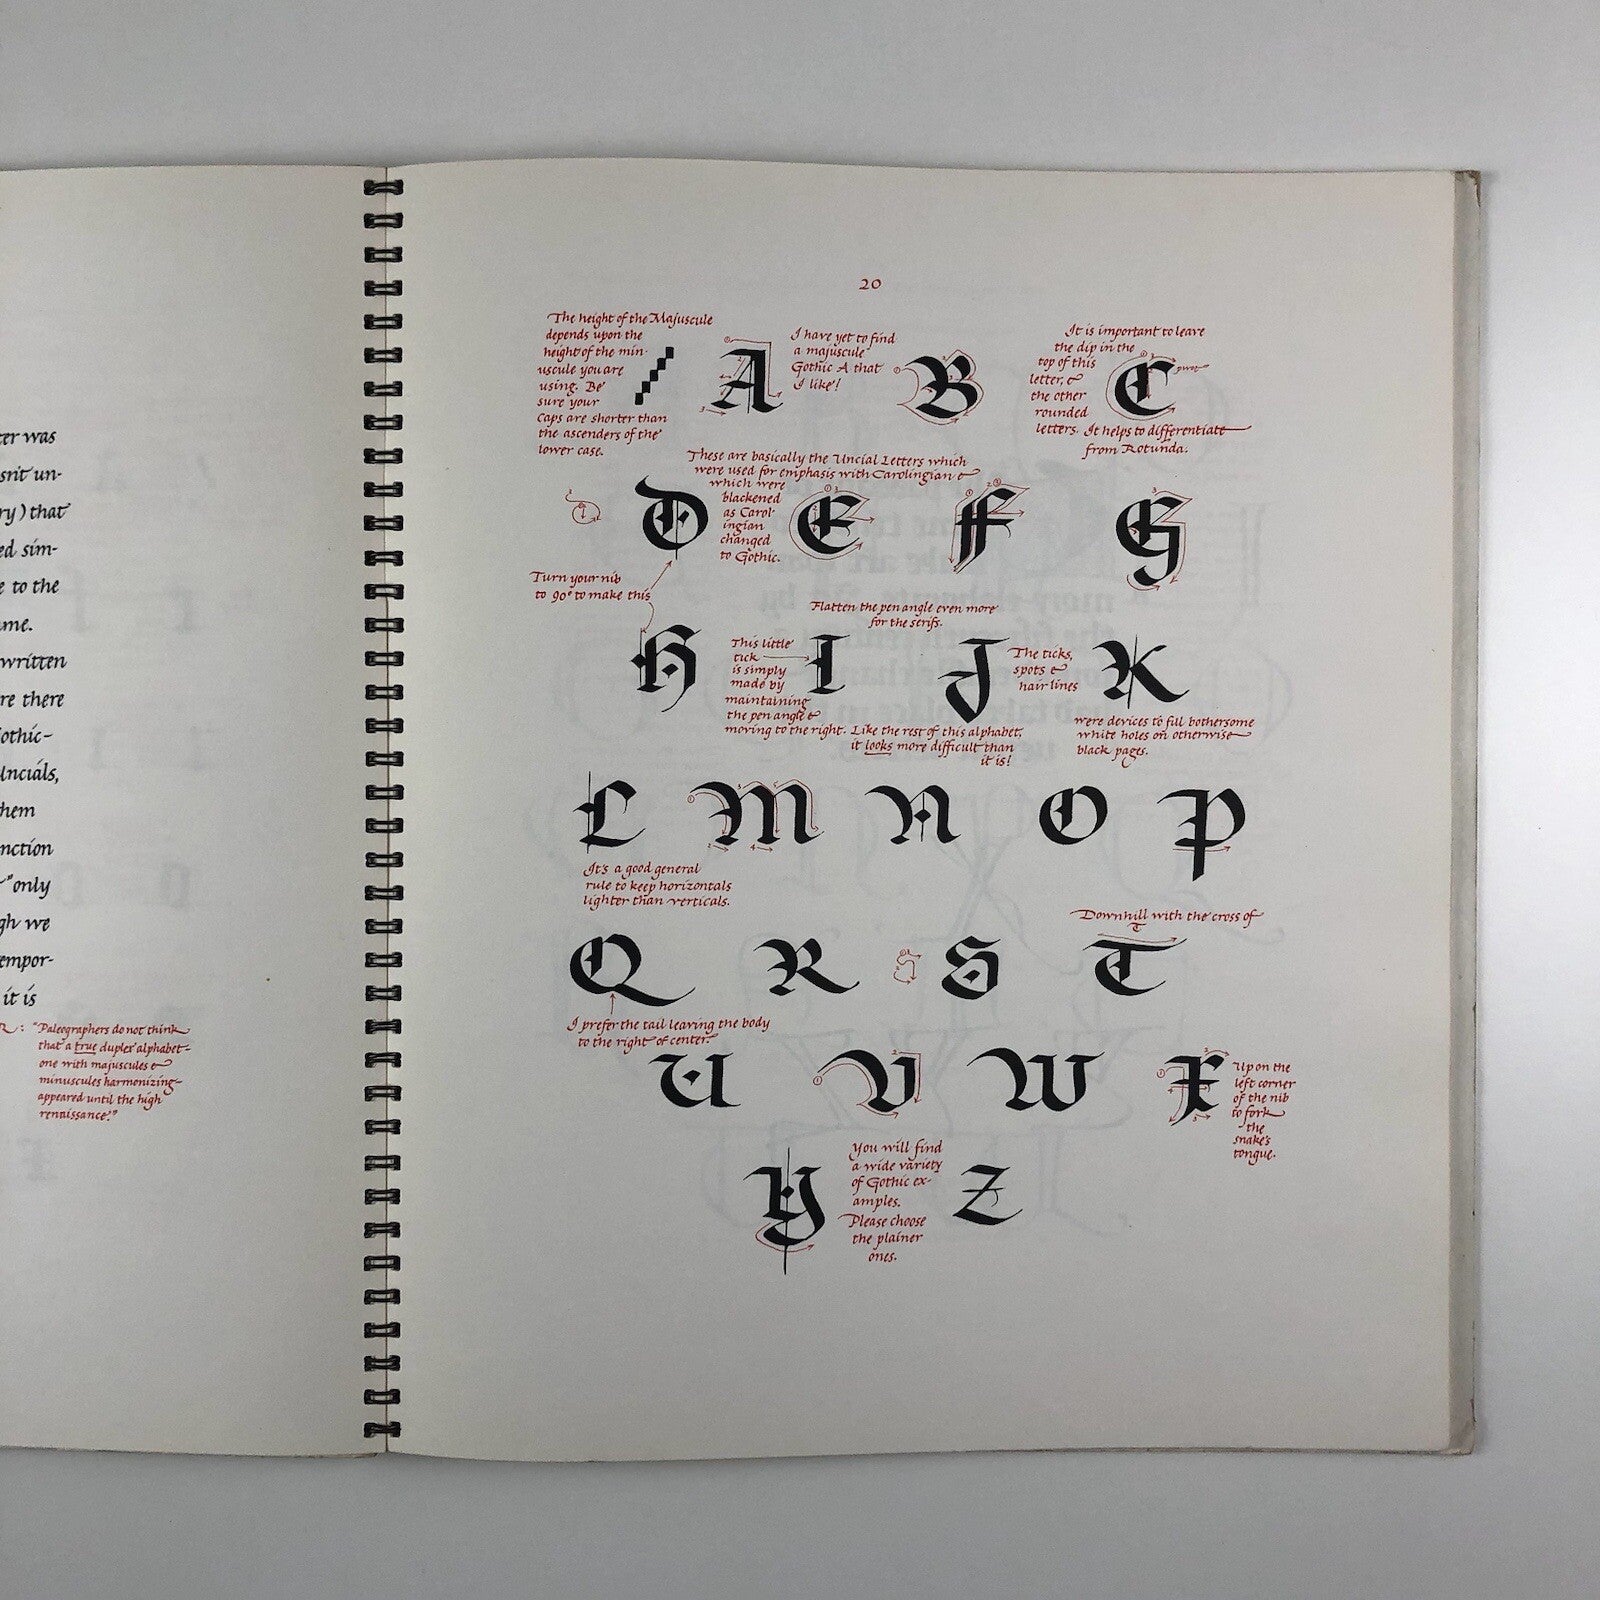 ter was
sn't un-
ry) that
ed sim-
e to the
me.
written
re there
othic-
Uncials,
hem
nction
" only
gh we
empor-
it is
R: "Paleographers do not think
that a true duplex alphabet-
one with majuscules &
minuscules harmonizing-
appeared until the high
renaissance."
20
The height of the Majuscule
depends upon the
height of the min-
uscule you are
using. Be
sure your
caps are shorter than
the ascenders of the
lower case.
A
I have yet to find
a majuscule
Gothic A that
I like!
B
It is important to leave
the dip in the
top of this
letter, &
the other
rounded
letters. It helps to differentiate
from Rotunda.
C
pivot
These are basically the Uncial Letters which
were used for emphasis with Carolingian &
which were
blackened
as Carol-
ingian
changed
to Gothic.
D E F G
Turn your nib
to 90° to make this
Flatten the pen angle even more
for the serifs.
H
This little
tick
is simply
made by
maintaining
the pen angle &
moving to the right. Like the rest of this alphabet,
it looks more difficult than
it is!
I J
The ticks,
spots &
hair lines
were devices to fill bothersome
white holes on otherwise
black pages.
K
L M N O P
It's a good general
rule to keep horizontals
lighter than verticals.
Downhill with the cross of
T
Q R S T
I prefer the tail leaving the body
to the right of center.
U V W X
Upon the
left corner
of the nib
to fork
the
snake's
tongue.
Y
You will find
a wide variety
of Gothic ex-
amples.
Please choose
the plainer
ones.
Z